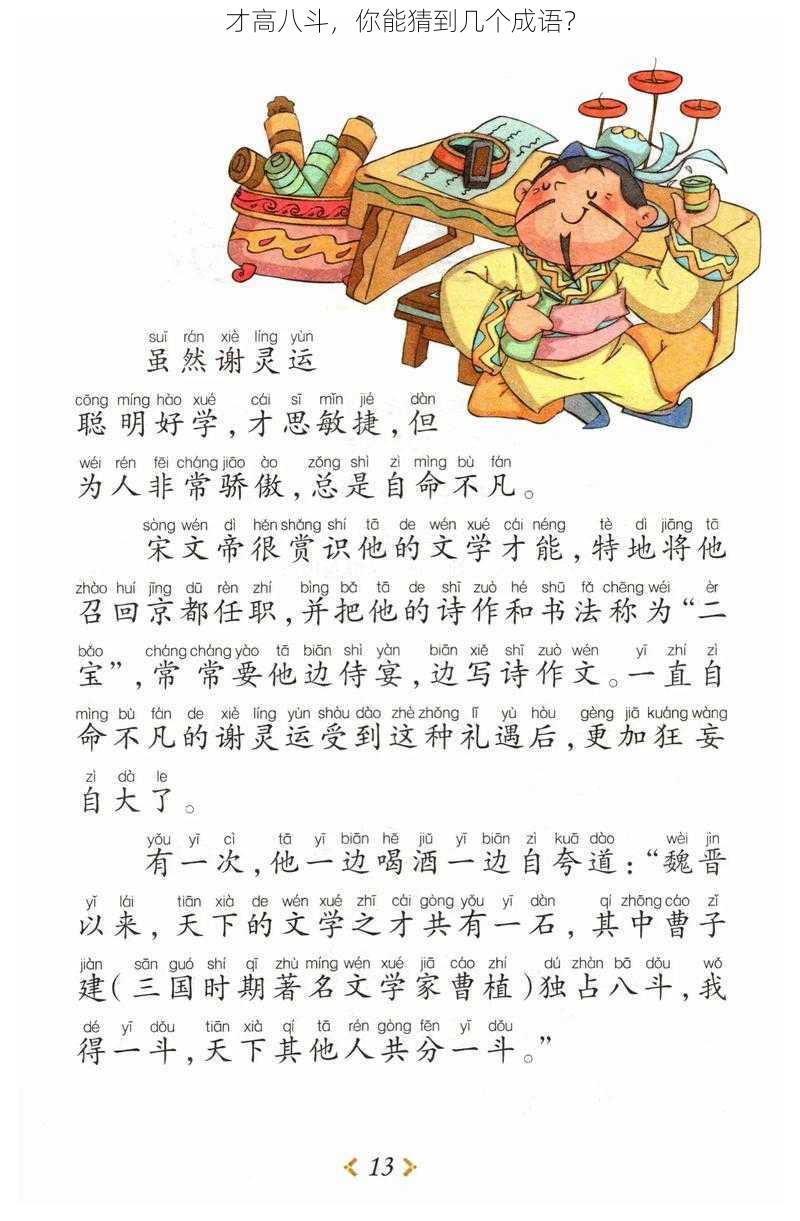 才高八斗，你能猜到几个成语？
suī rán xiè líng yùn
虽然谢灵运
cōng míng hào xué cái sī mǐn jié dàn
聪明好学，才思敏捷，但
wéi rén fēi cháng jiāo ào zǒng shì zì mìng bù fán
为人非常骄傲，总是自命不凡。
sòng wén dì hěn shǎng shí tā de wén xué cái néng tè dì jiāng tā
宋文帝很赏识他的文学才能，特地将他
zhào huí jīng dū rèn zhí bìng bǎ tā de shī zuò hé shū fǎ chēng wéi èr
召回京都任职，并把他的诗作和书法称为“二
bǎo cháng cháng yào tā biān shì yàn biān xiě shī zuò wén yī zhí zì
宝”，常常要他边侍宴，边写诗作文。一直自
mìng bù fán de xiè líng yùn shòu dào zhè zhǒng lǐ yù hòu gèng jiā kuáng wàng
命不凡的谢灵运受到这种礼遇后，更加狂妄
zì dà le
自大了。
yǒu yī cì tā yī biān hē jiǔ yī biān zì kuā dào wèi jìn
有一次，他一边喝酒一边自夸道：“魏晋
yǐ lái tiān xià de wén xué zhī cái gòng yǒu yī dàn qí zhōng cáo zǐ
以来，天下的文学之才共有一石，其中曹子
jiàn sān guó shí qī zhù míng wén xué jiā cáo zhí dú zhàn bā dǒu wǒ
建（三国时期著名文学家曹植）独占八斗，我
dé yī dǒu tiān xià qí tā rén gòng fēn yī dǒu
得一斗，天下其他人共分一斗。”
13